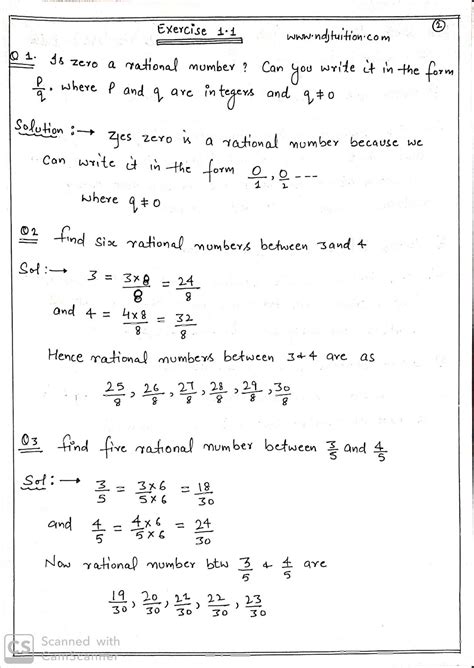 Exercise 1.1
www.ndjtuition.com
1
Q1. Is zero a rational number? Can you write it in the form
p/q. where P and q are integers and q ≠ 0
Solution :→ Yes zero is a rational number because we
Can write it in the form 0/1, 0/2 ---
where q ≠ 0
Q2 find six rational numbers between 3 and 4
Sol :→ 3 = 3×8/8 = 24/8
and 4 = 4×8/8 = 32/8
Hence rational numbers between 3 + 4 are as
25/8, 26/8, 27/8, 28/8, 29/8, 30/8
Q3 find five rational number between 3/5 and 4/5
Sol :→ 3/5 = 3×6/5×6 = 18/30
and 4/5 = 4×6/5×6 = 24/30
Now rational number btw 3/5 & 4/5 are
19/30, 20/30, 21/30, 22/30, 23/30
CS Scanned with
CamScanner